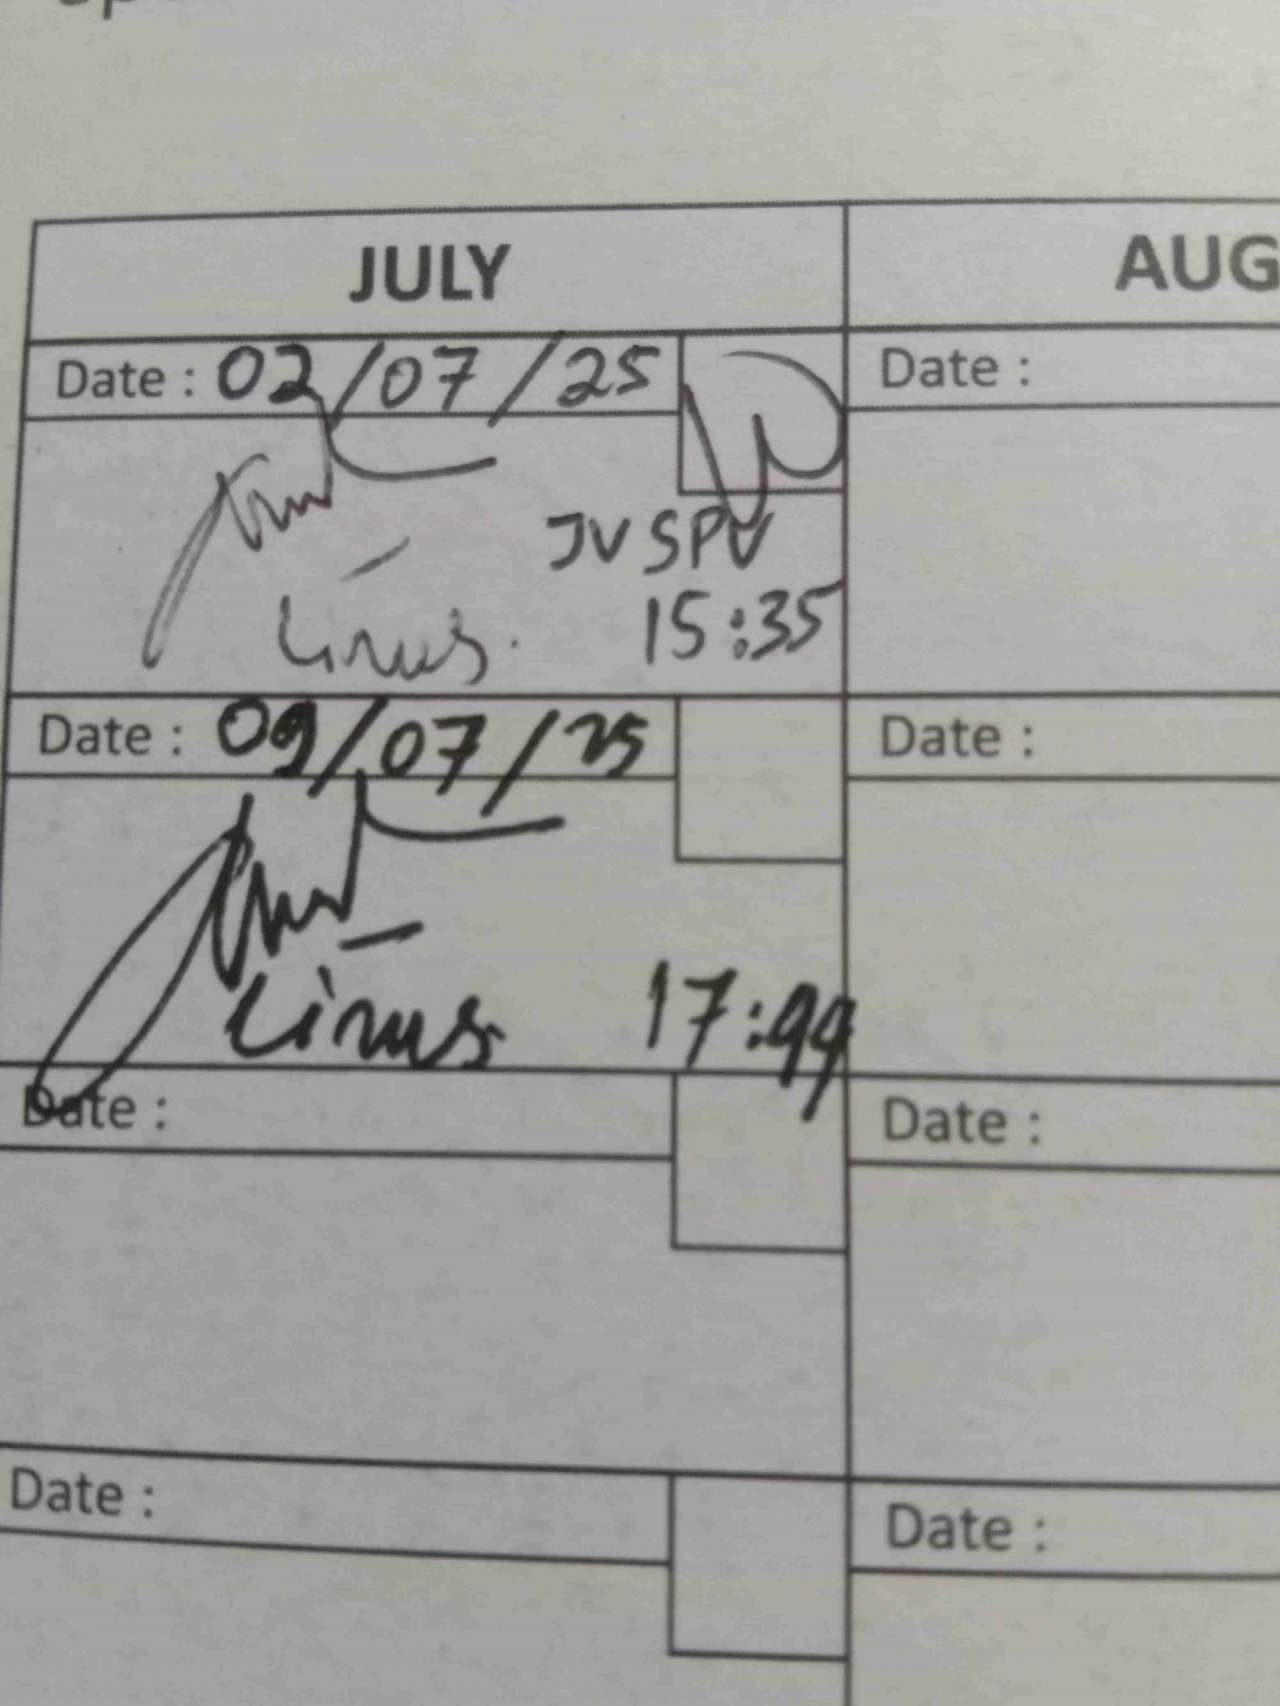 JULY
AUG
Date : 02/07/25
Date :
JV SPV
Linus.
15:35
Date : 09/07/25
Date :
Linus
17:44
Date :
Date :
Date :
Date :